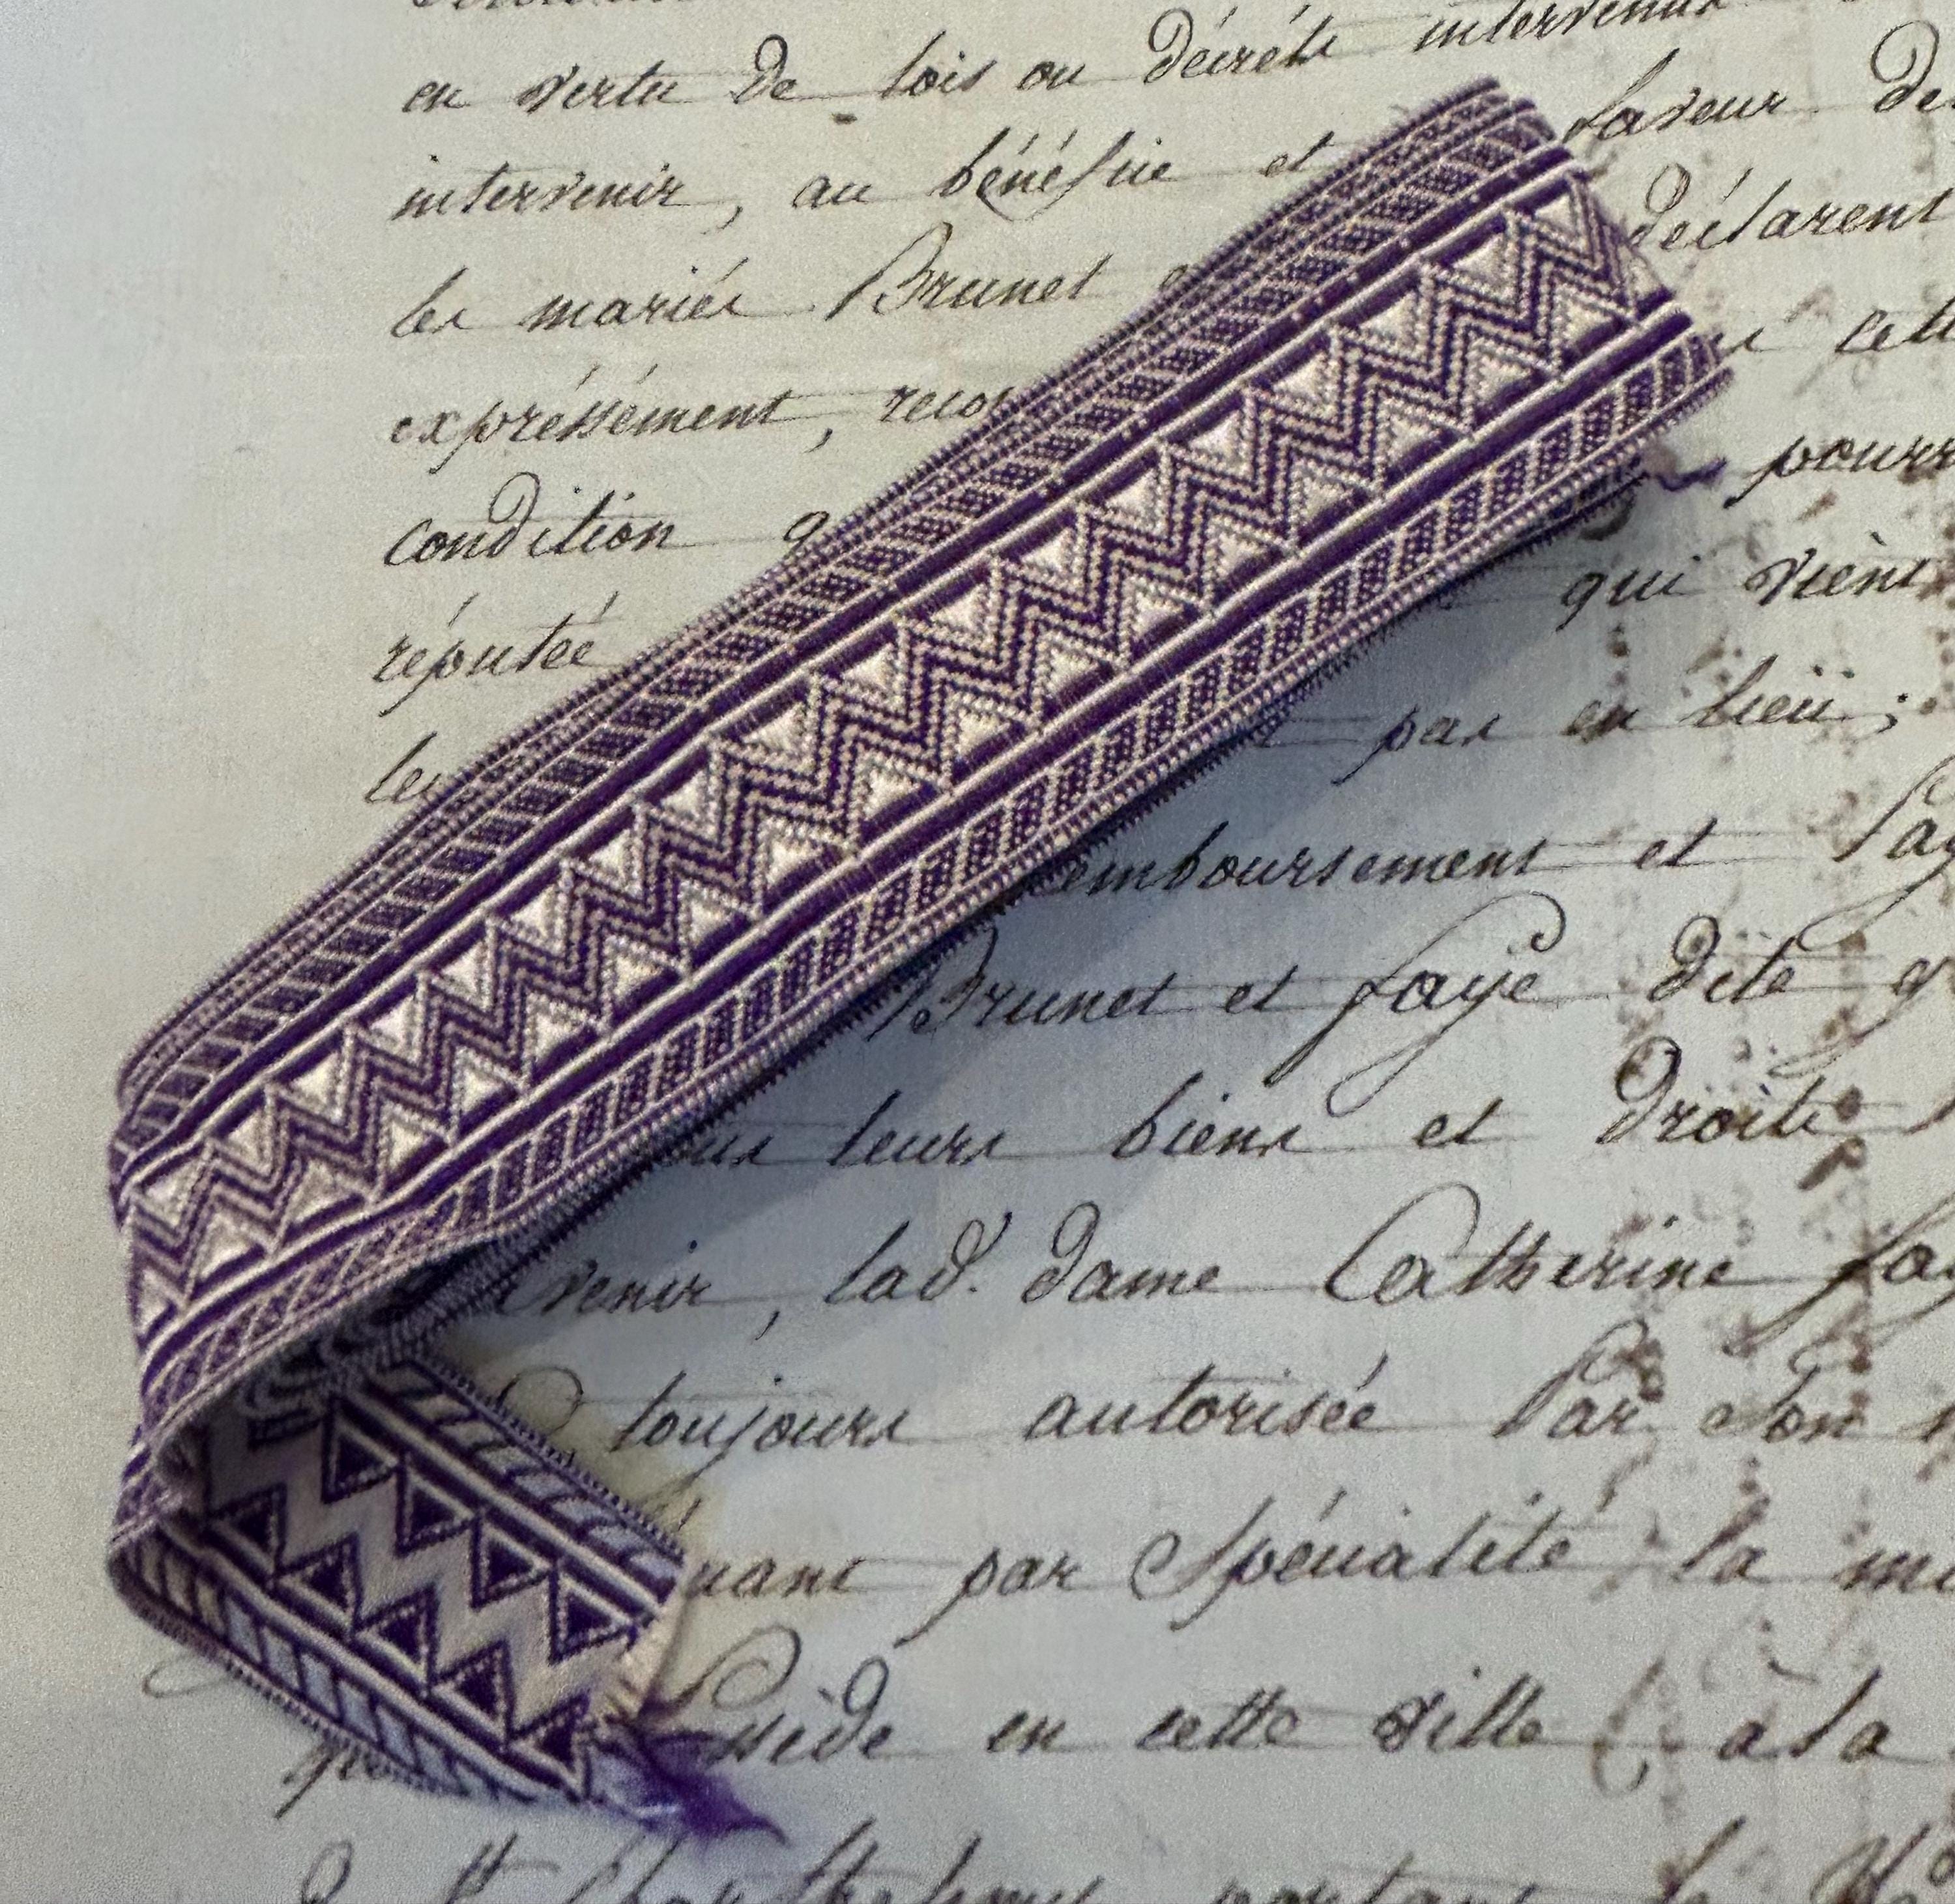 en vertu de lois ou décréts intervenus
intervenir, au bénéfice et faveur de
les mariés Brunet déclarent
expréssément, cette
condition pourr
réputée qui vient
les par en lieu ;
emboursement et
Brunet et faye dite q
leurs biens et droits
venir, lad. dame Catherine fa
toujours autorisée Par Son
uant par Spécialité la m
en cette ville ( à la